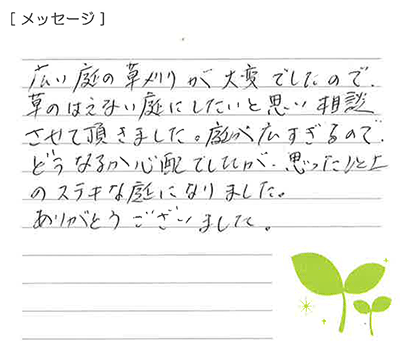 [ メッセージ ]
広い庭の草刈りが大変でしたので、
草のはえない庭にしたいと思い相談
させて頂きました。庭が広すぎるので、
どうなるか心配でしたが、思った以上
のステキな庭になりました。
ありがとうございました。